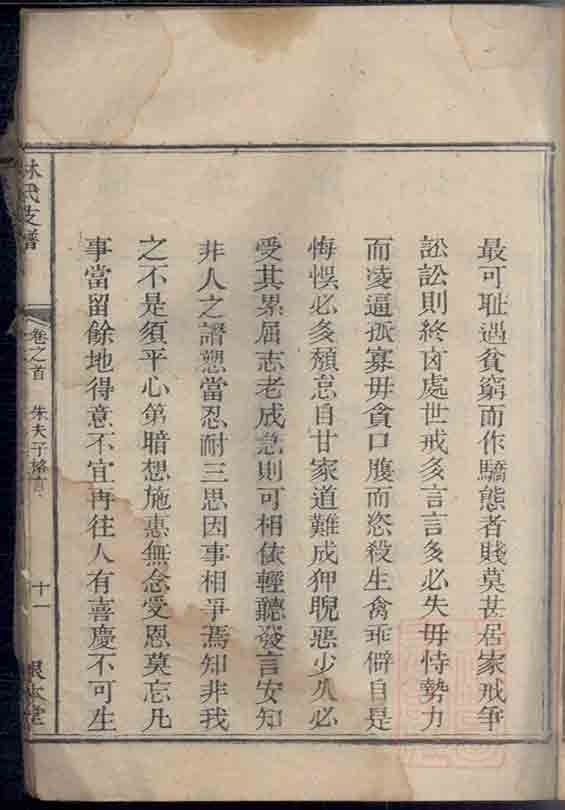 最可耻遇貧窮而作驕態者賤莫甚居家戒爭
訟訟則終凶處世戒多言言多必失毋恃勢力
而凌逼孤寡毋貪口腹而恣殺生禽乖僻自是
悔悞必多頽怠自甘家道難成狎睨惡少久必
受其累屈志老成急則可相依輕聽發言安知
非人之譖愬當忍耐三思因事相爭焉知非我
之不是須平心第暗想施惠無念受恩莫忘凡
事當留餘地得意不宜再往人有喜慶不可生
林氏支譜
卷之首
朱夫子格言
十一